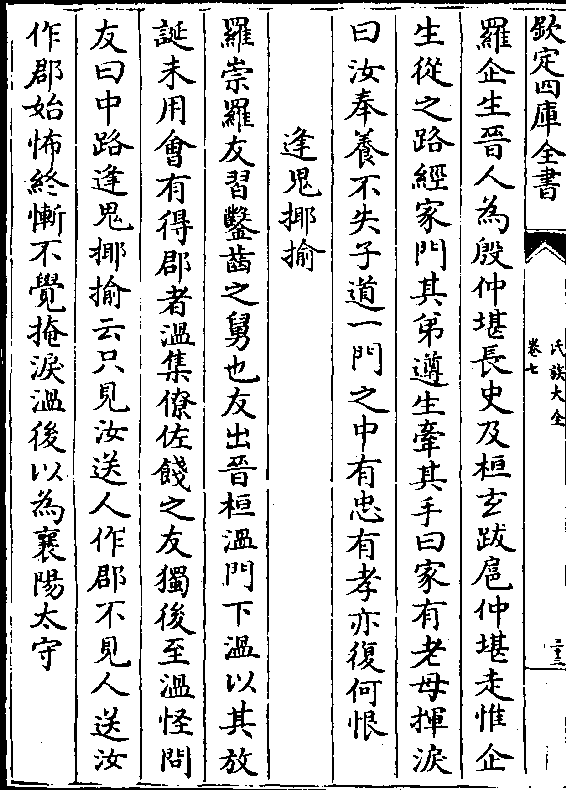 欽定四庫全書
氏族大全
卷七
羅企生晉人為殷仲堪長史及桓玄跋扈仲堪走惟企
生從之路經家門其弟遵生牽其手曰家有老母揮淚
曰汝奉養不失子道一門之中有忠有孝亦復何恨
逢鬼揶揄
羅崇羅友習鑿齒之舅也友出晉桓溫門下溫以其放
誕未用會有得郡者溫集僚佐餞之友獨後至溫怪問
友曰中路逢鬼揶揄云只見汝送人作郡不見人送汝
作郡始怖終慚不覺掩淚溫後以為襄陽太守